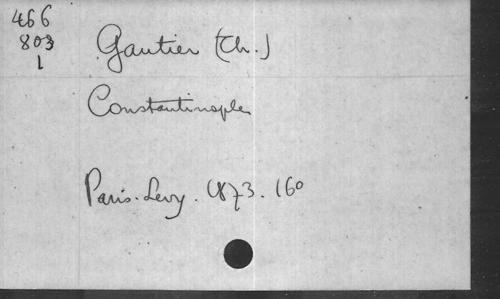 466
803
1
Gautier (Th.)
Constantinople
Paris. Levy. 1873. 16º